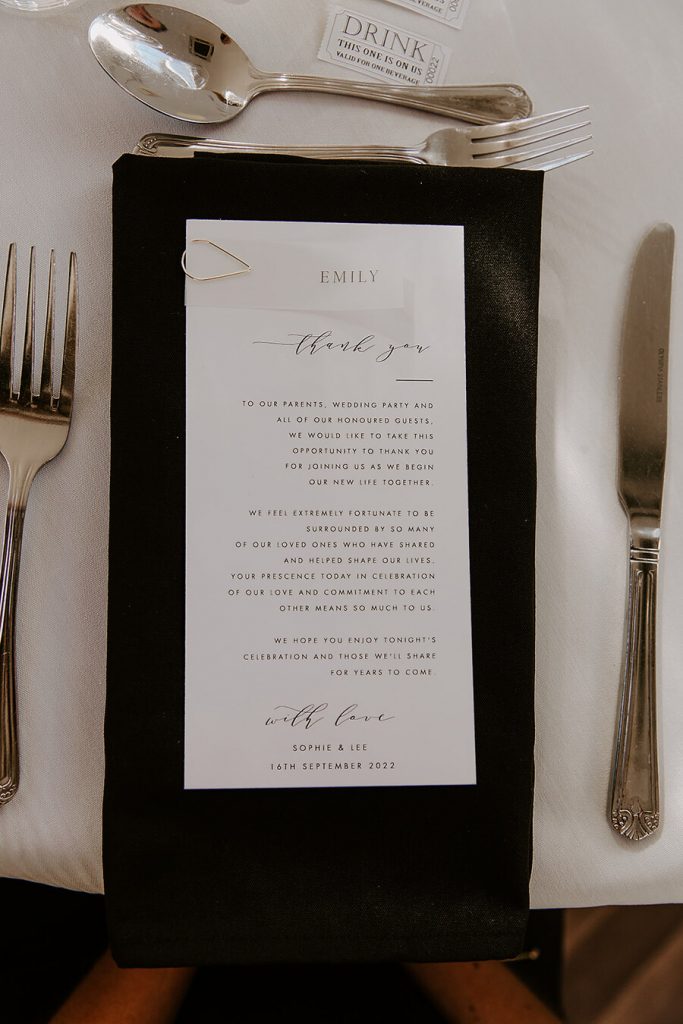 DRINK
THIS ONE IS ON US
VALID FOR ONE BEVERAGE
00022
EMILY
thank you
TO OUR PARENTS, WEDDING PARTY AND
ALL OF OUR HONOURED GUESTS,
WE WOULD LIKE TO TAKE THIS
OPPORTUNITY TO THANK YOU
FOR JOINING US AS WE BEGIN
OUR NEW LIFE TOGETHER.
WE FEEL EXTREMELY FORTUNATE TO BE
SURROUNDED BY SO MANY
OF OUR LOVED ONES WHO HAVE SHARED
AND HELPED SHAPE OUR LIVES.
YOUR PRESCENCE TODAY IN CELEBRATION
OF OUR LOVE AND COMMITMENT TO EACH
OTHER MEANS SO MUCH TO US.
WE HOPE YOU ENJOY TONIGHT'S
CELEBRATION AND THOSE WE'LL SHARE
FOR YEARS TO COME.
with love
SOPHIE & LEE
16TH SEPTEMBER 2022